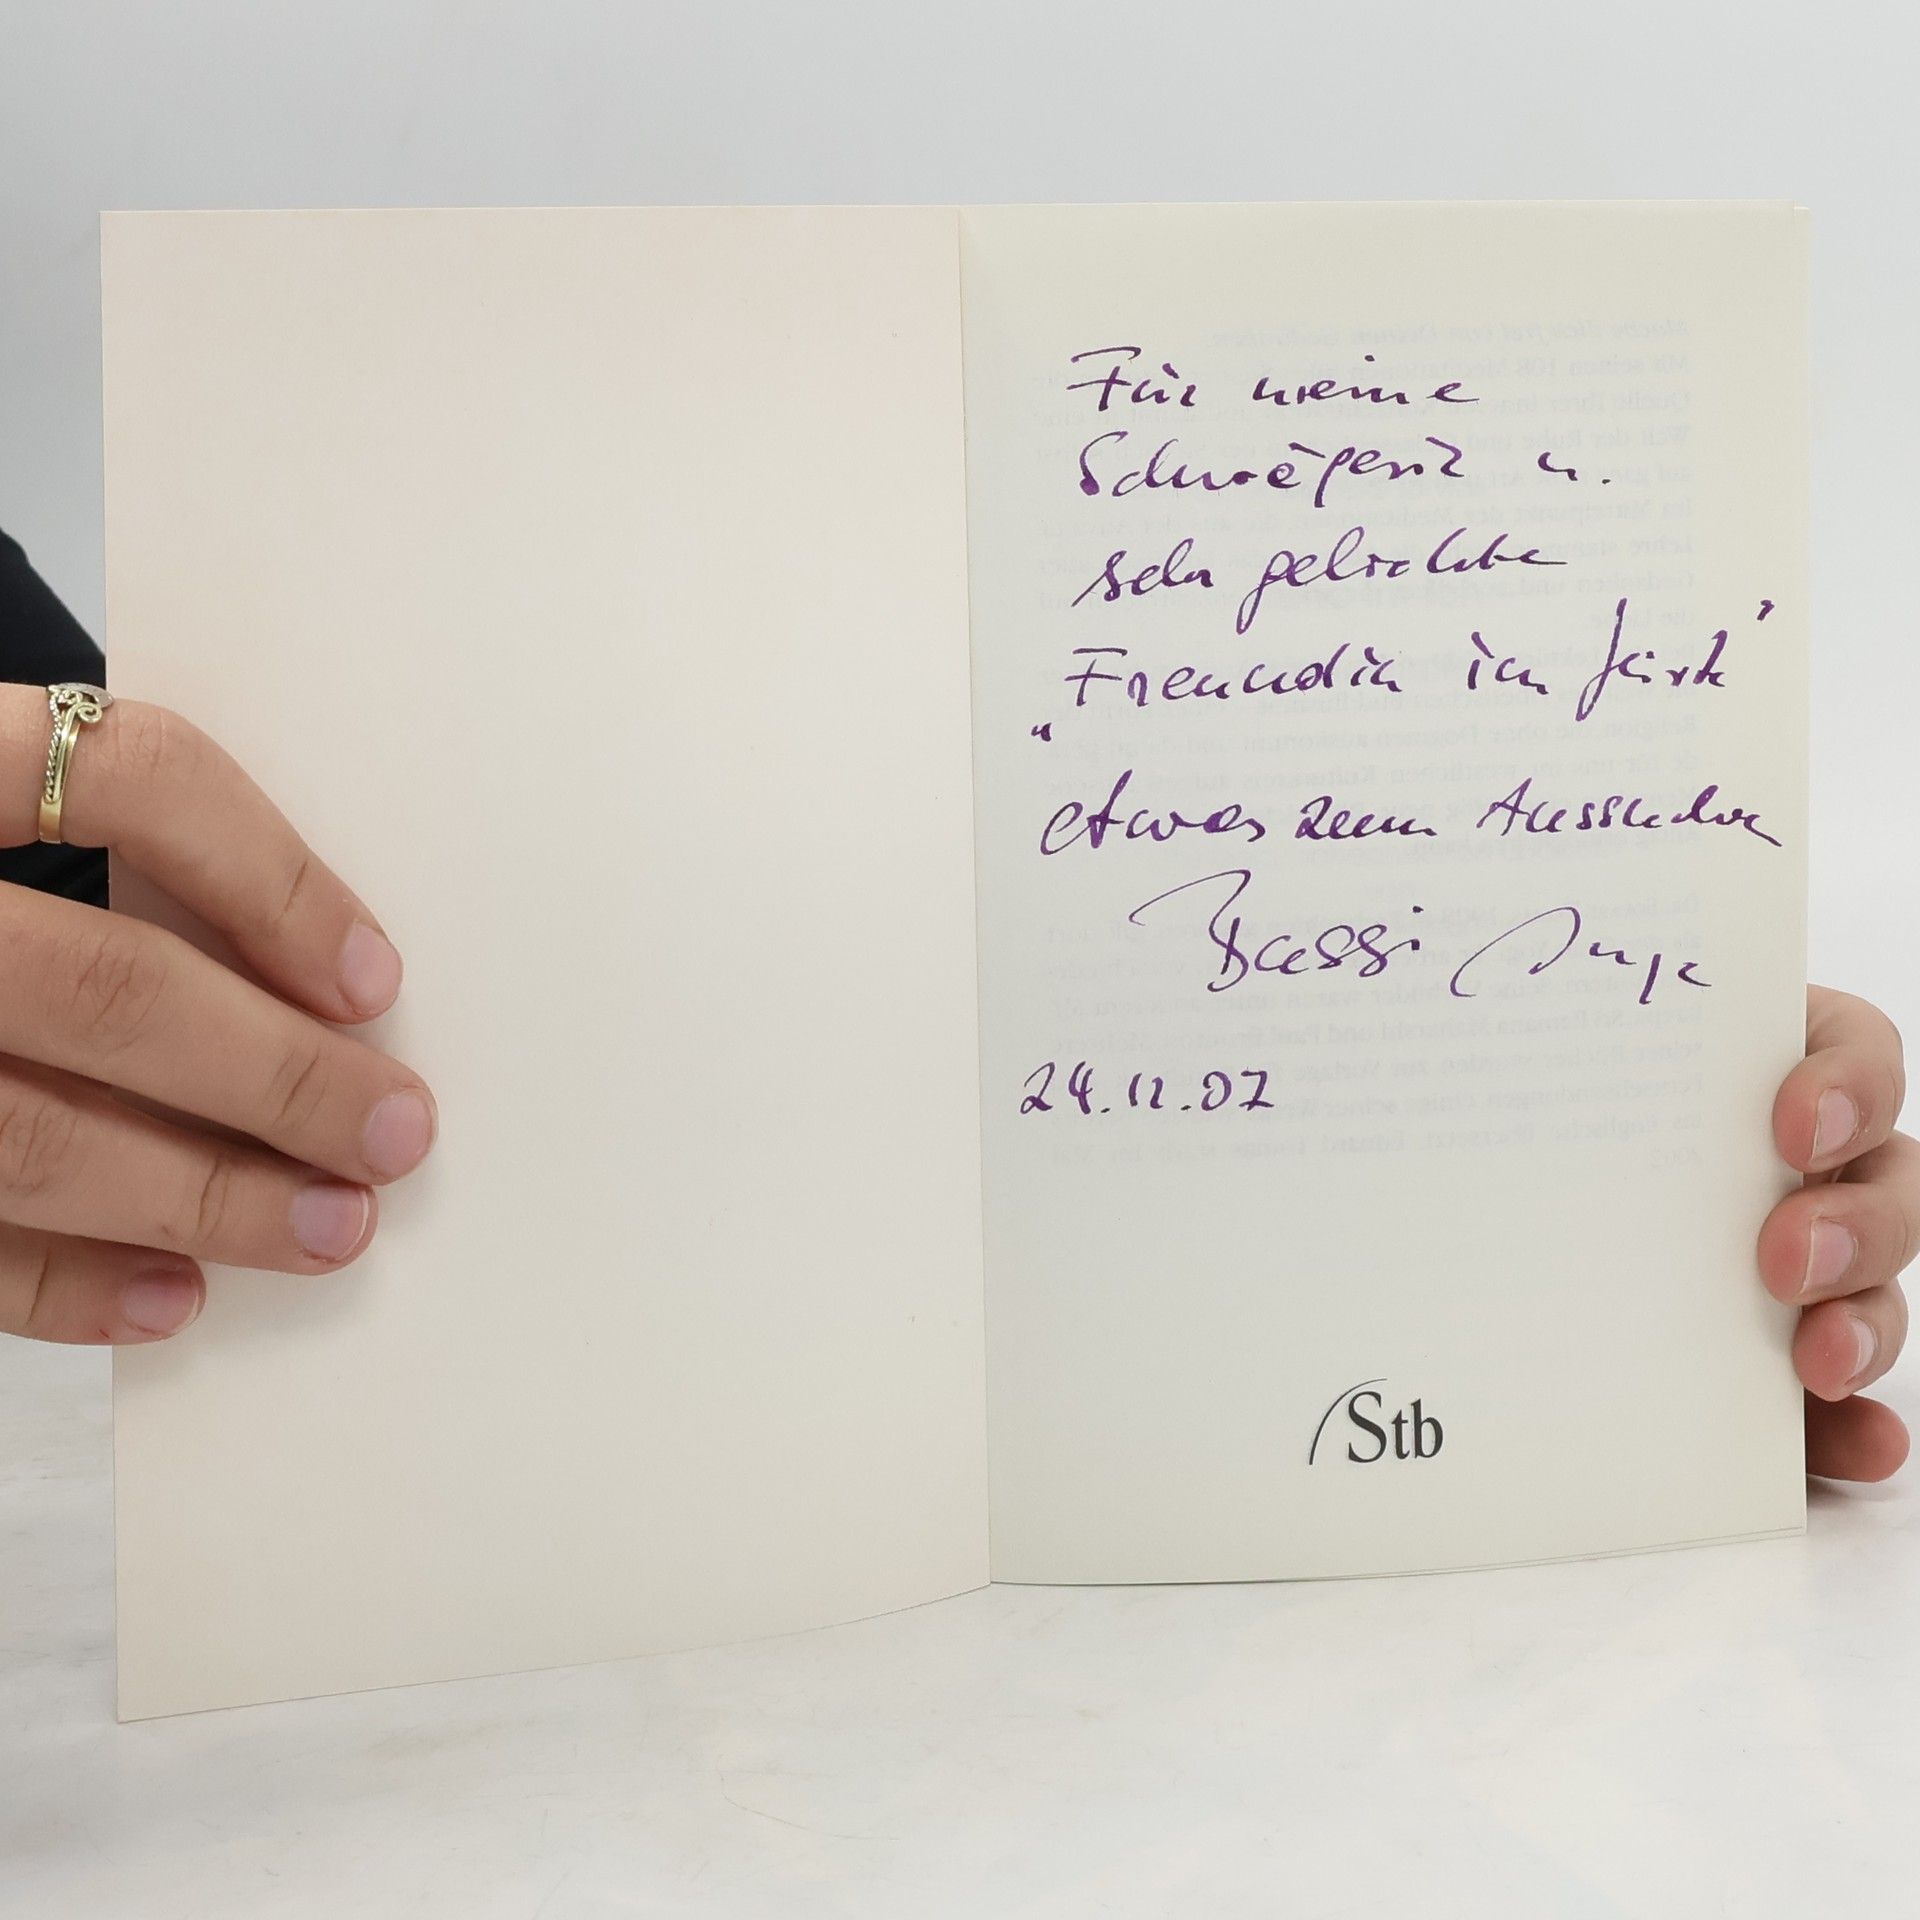 Für meine
Schwägerin u.
sehr geliebte
"Freundin im Geiste"
etwas zum Aussuchen
Bussi Inge
24.12.07
Stb